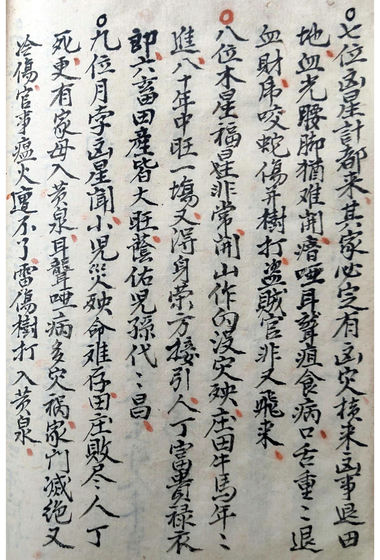 七位凶星計都来其家必定有凶灾横来凶事退田
地血光腰脚猶难開瘖哑耳聋疽食病口舌重〻退
血財虎咬蛇傷并樹打盗賊官非又飛来
八位木星福星非常開山作向没灾殃庄田牛馬年〻
進八十年中旺一塲又得身荣方接引人丁富貴禄衣
即六畜田產皆大旺蔭佑児孫代〻昌
九位月孛凶星闻小児災殃命难存田庄敗尽人丁
死更有家母入黄泉耳聾哑病多灾禍家门滅絶又
冷傷官事瘟火更不了雷傷樹打入黄泉